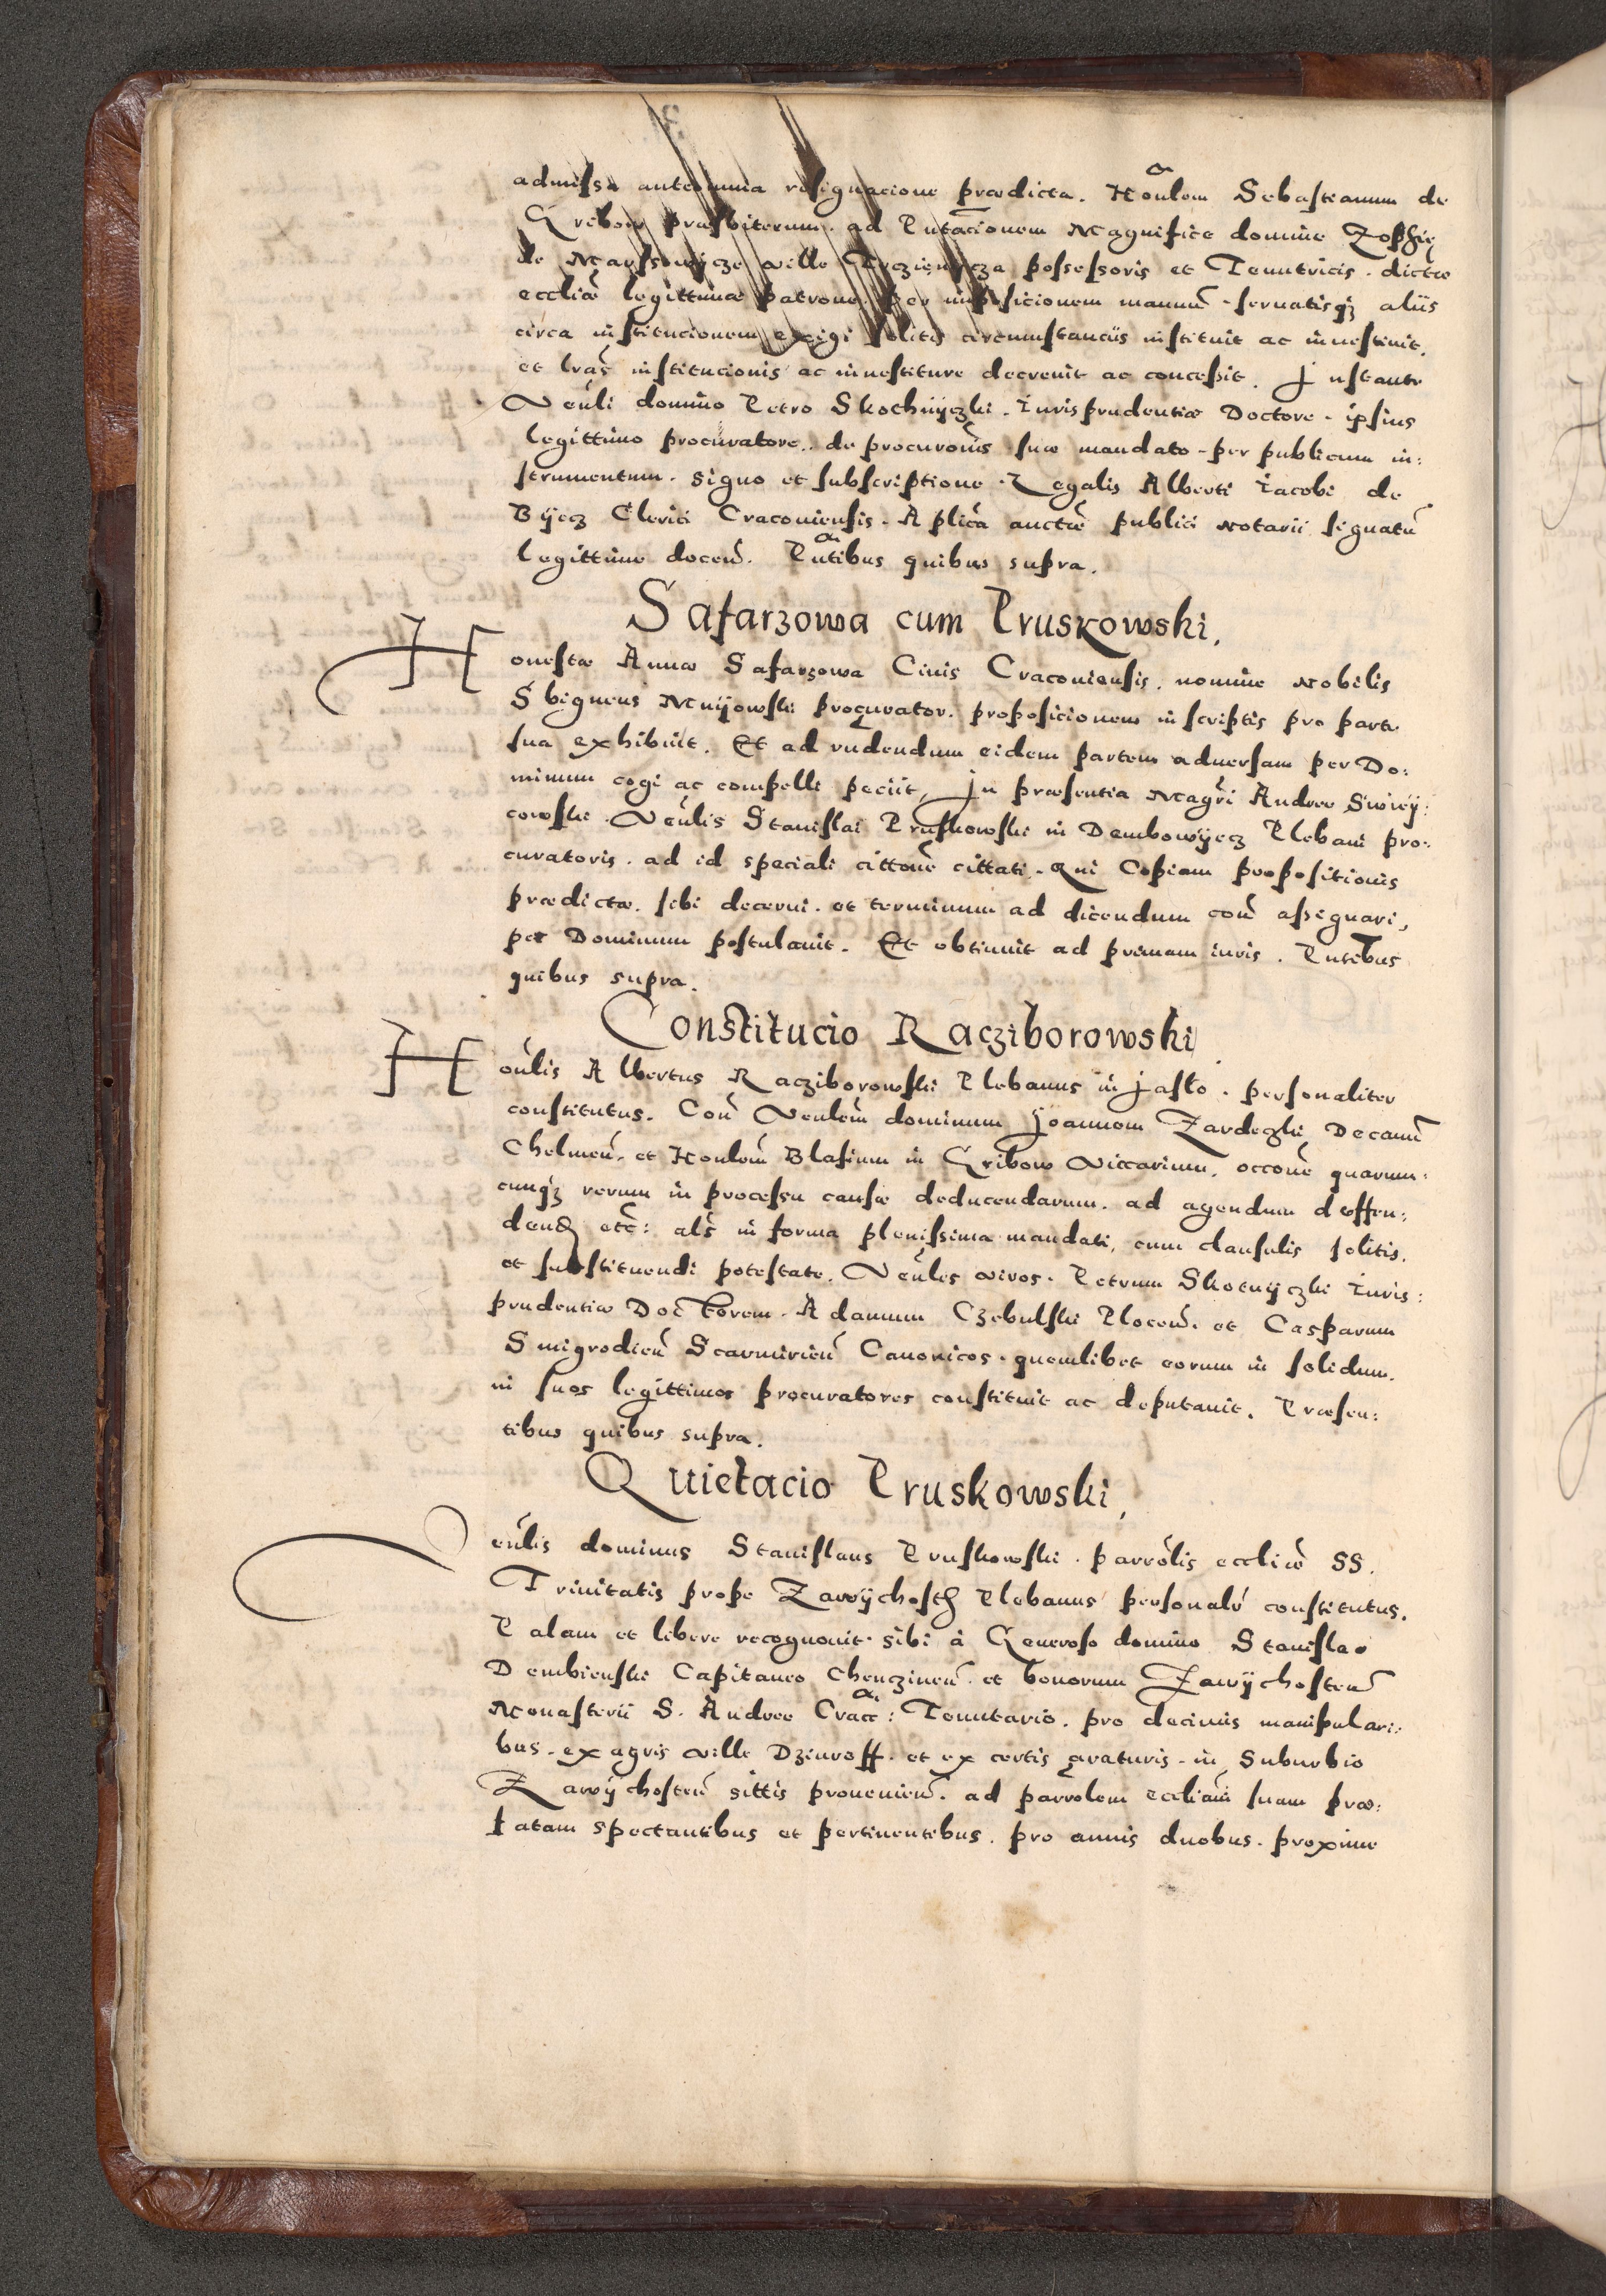 admissa anteomnia resignacione prædicta. Honlem Sebastianum de
Gribow præsbiterum. ad Pntacionem Magnifice domine Zophię
de Marssowicze ville possessoris et Tenutricis. dictæ
eccliæ legittimæ patrone. per impositionem manuū. seruatisqz aliis
circa institucionem exigi solitis circumstanciis instituit ac inuestiuit.
et lras institucionis ac inuestiture decreuit ac concessit. Instante
Venli domino Petro Skothnyczki. Iurisprudentiæ Doctore. ipsius
legittimo procuratore. de procuronis suæ mandato. per publicum in:
strumentum. signo et subscriptione. Legalis Alberti Iacobi de
Byecz Clerici Cracouiensis. Aplica auctte publici Notarii signatū
legittime docen. Pntibus quibus supra.
Safarzowa cum Pruskowski.
Honestæ Annæ Safarzowa Ciuis Cracouiensis. nomine Nobilis
Sbigneus Mnyowski procurator. propositionem in scriptis pro parte
sua exhibuit. Et ad rñdendum eidem partem aduersam per Do:
minum cogi ac compelli peciit, In præsentia Magri Andree Swiey:
cowski. Venlis Stanislai Pruskowski in Dembowyecz Plebani pro:
curatoris. ad id speciali cittone cittati. Qui Copiam propositionis
prædictæ. sibi decerni. et terminum ad dicendum con assignari,
per Dominum postulauit. Et obtinuit ad primam iuris. Pntibus
quibus supra.
Constitucio Racziborowski
Honlis Albertus Racziborowski Plebanus in Jaslo. personaliter
constitutus. Con Venlem dominum Joannem Zardeczki Decanū
Chelmen. et Honlem Blasium in Gribow Viccarium. occone quarum:
cunqz rerum in processu causæ deducendarum. ad agendum deffen:
dend etc: als in forma plenissima mandati, cum clausulis solitis.
et substituendi potestate. Venles viros. Petrum Skotnyczki Iuris:
prudentiæ Doctorem. Adamum Czebulski Plocen. et Casparum
Smigrodien Scarmirien Canonicos. quemlibet eorum in solidum.
in suos legittimos procuratores constituit ac deputauit. Præsen:
tibus quibus supra.
Quietacio Pruskowski,
Venlis dominus Stanislaus Pruskowski. parrolis eccliæ SS.
Trinitatis prope Zawychosth Plebanus personalr constitutus.
Palam et libere recognouit. sibi à Generoso domino Stanislao
Dembienski Capitaneo Chenczinen. et bonorum Zawychosten
Monasterii S. Andree Crac: Tenutario. pro decimis manipulari:
bus. ex agris ville Dziuroff. et ex certis araturis. in Suburbio
Zawychosten sittis prouenien. ad parrolem eccliam suam præ:
fatam spectantibus et pertinentibus. pro annis duobus. proxime